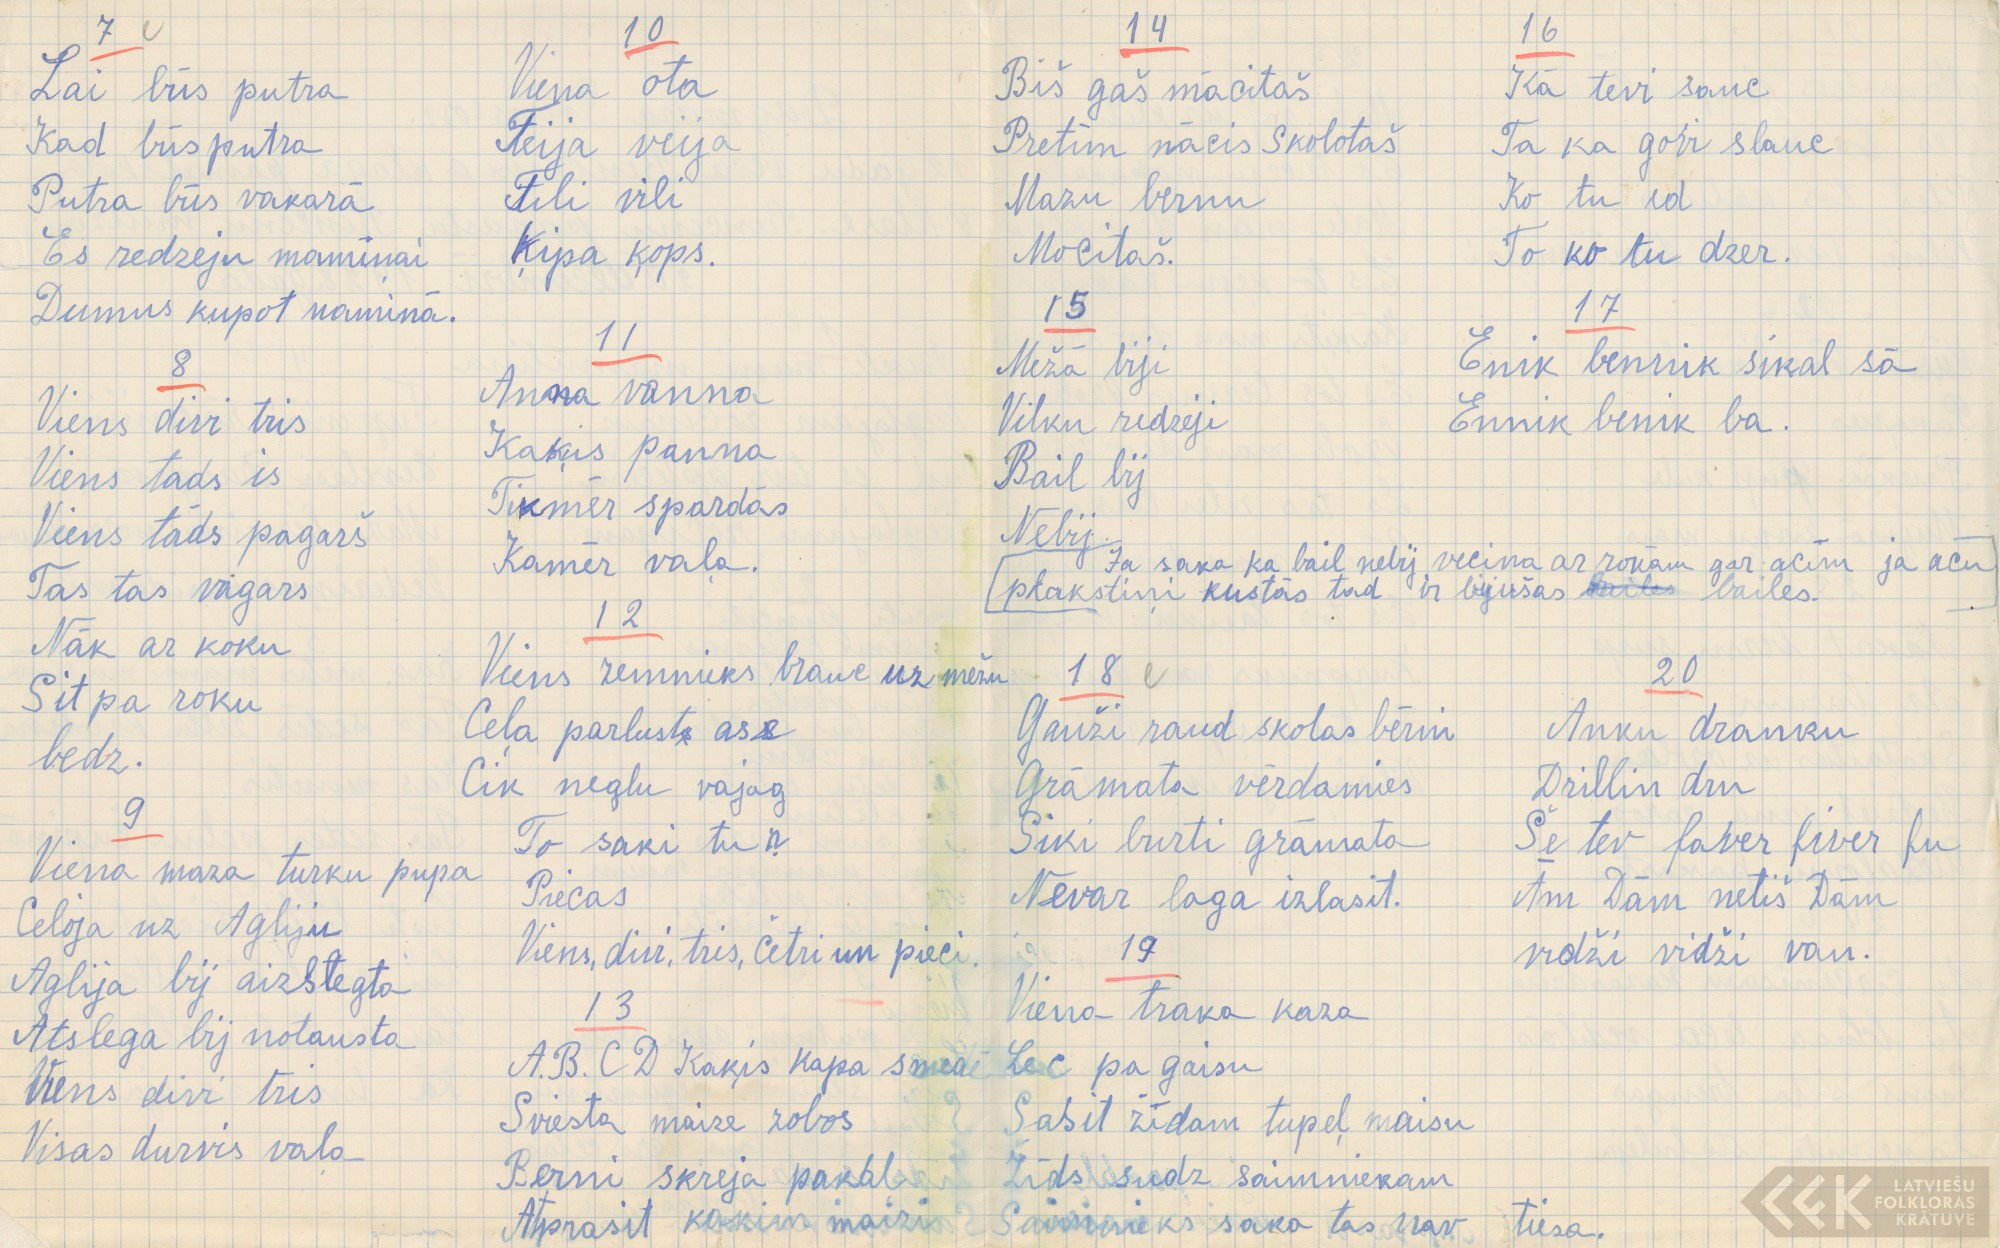 7
Lai būs putra
Kad būs putra
Putra būs vakarā
Es redzeju mamiņai
Dumus kupot namiņā.
8
Viens divi tris
Viens tads is
Viens tāds pagarš
Tas tas vagars
Nāk ar koku
Sit pa roku
bedz.
9
Viena maza turku pupa
Celoja uz Agliju
Aglija bij aizslegta
Atslega bij notausta
Viens divi tris
Visas durvis vaļa
10
Viena ota
Feija veija
Fili vili
Ķipa ķops.
11
Anna vanna
Kaķis panna
Tikmēr spardas
Kamēr vaļa.
12
Viens zemnieks brauc uz mežu
Ceļa parlust ass
Cik neglu vajag
To saki tu
Piecas
Viens, divi, tris, četri un pieci.
13
A.B.C D Kaķis kapa
Sviesta maize zobos
Berni skreja pakal
Atprasit kakim maizi
14
Biš gaš mācitaš
Pretim nācis Skolotaš
Mazu bernu
Mocitaš.
15
Mežā biji
Vilku redzeji
Bail bij
Nebij.
Ja saka ka bail nebij vecina ar rokām gar acīm ja acu
plakstiņi kustās tad ir bijušas bailes bailes.
16
Kā tevi sauc
Ta ka govi slauc
Ko tu ed
To ko tu dzer.
17
Enik bennik sikal sā
Ennik benik ba.
18
Gauži raud skolas bērni
Grāmata vērdamies
Siki burti grāmata
Nevar laga izlasit.
19
Viena traka kaza
Lec pa gaisu
Sasit žīdam tupeļ maisu
Žīds sudz saimniekam
Saimnieks saka tas nav tiesa.
20
Anku dranku
Drillin dru
Še tev faver fiver fu
Ām Dām netiš Dām
vidži vidži van.
LATVIEŠU
FOLKLORAS
KRĀTUVE